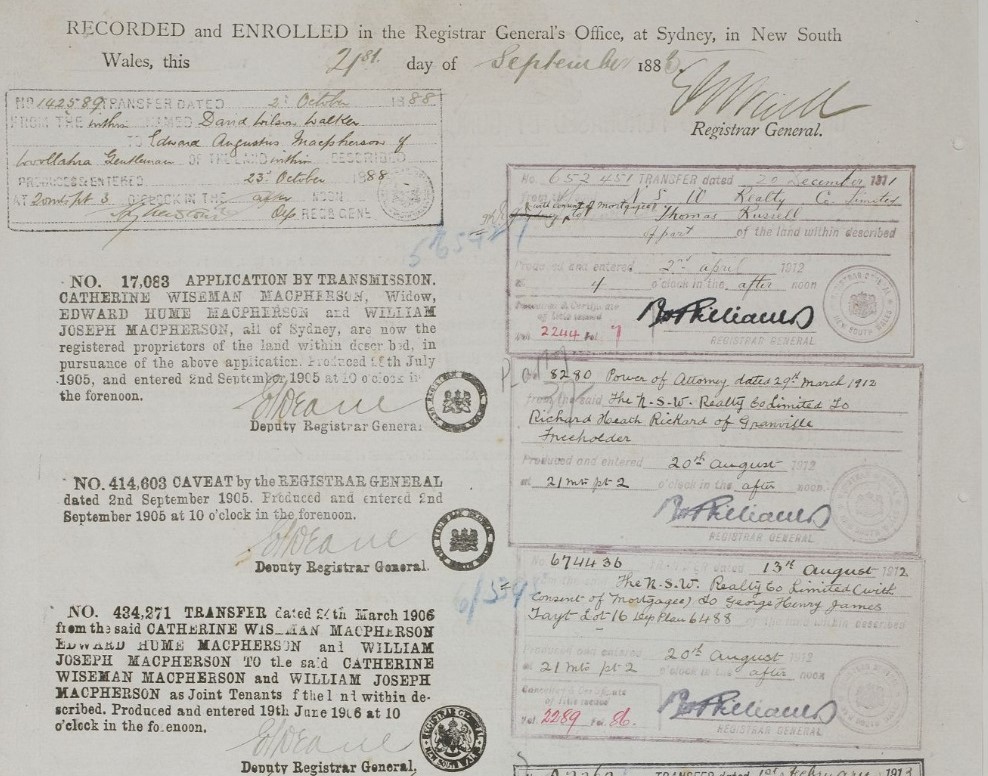 RECORDED and ENROLLED in the Registrar General's Office, at Sydney, in New South
Wales, this 21st day of September 188
Registrar General.
No 142589 TRANSFER DATED 23 October 1888
FROM THE within NAMED David Wilson Walker
TO Edward Augustus Macpherson of
Woollahra Gentleman OF THE LAND within DESCRIBED
PRODUCED & ENTERED 23d October 1888
AT 20 mts pt 3 O'CLOCK IN THE after NOON
Dep REG GENL
NO. 17,083 APPLICATION BY TRANSMISSION.
CATHERINE WISEMAN MACPHERSON, Widow,
EDWARD HUME MACPHERSON and WILLIAM
JOSEPH MACPHERSON, all of Sydney, are now the
registered proprietors of the land within described, in
pursuance of the above application. Produced th July
1905, and entered 2nd September 1905 at 10 o'clock in
the forenoon.
Deputy Registrar General
NO. 414,603 CAVEAT by the REGISTRAR GENERAL
dated 2nd September 1905. Produced and entered 2nd
September 1905 at 10 o'clock in the forenoon.
Deputy Registrar General.
NO. 434,271 TRANSFER dated 24th March 1906
from the said CATHERINE WIS_MAN MACPHERSON
EDWARD HUME MACPHERSON and WILLIAM
JOSEPH MACPHERSON TO the said CATHERINE
WISEMAN MACPHERSON and WILLIAM JOSEPH
MACPHERSON as Joint Tenants f the l nd within de-
scribed. Produced and entered 19th June 1906 at 10
o'clock in the fo.enoon.
Deputy Registrar General.
No. 652451 TRANSFER dated 20 December 1911
from the N S W Realty Co. Limited
(with consent of mortgagee) to Thomas Russell
of part of the land within described
Produced and entered 2nd April 1912
at 4 o'clock in the after noon
Certificate
of title issued
Vol. 2244 Fol. 7
REGISTRAR GENERAL
No. 8280 Power of Attorney dated 29th March 1912
from the said The N.S.W. Realty Co Limited To
Richard Heath Rickard of Granville
Freeholder
Produced and entered 20th August 1912
at 21 mts pt 2 o'clock in the after noon.
REGISTRAR GENERAL
No. 674436 TRANSFER dated 13th August 1912
The N.S.W. Realty Co Limited (with
consent of Mortgagee) to George Henry James
Tayt Lot 16 Dep Plan 6488 of the land within described
Produced and entered 20th August 1912
at 21 mts pt 2 o'clock in the after noon
Cancelled & Certificate
of Title issued
Vol. 2289 Fol. 86.
REGISTRAR GENERAL
TRANSFER dated 1st February 191